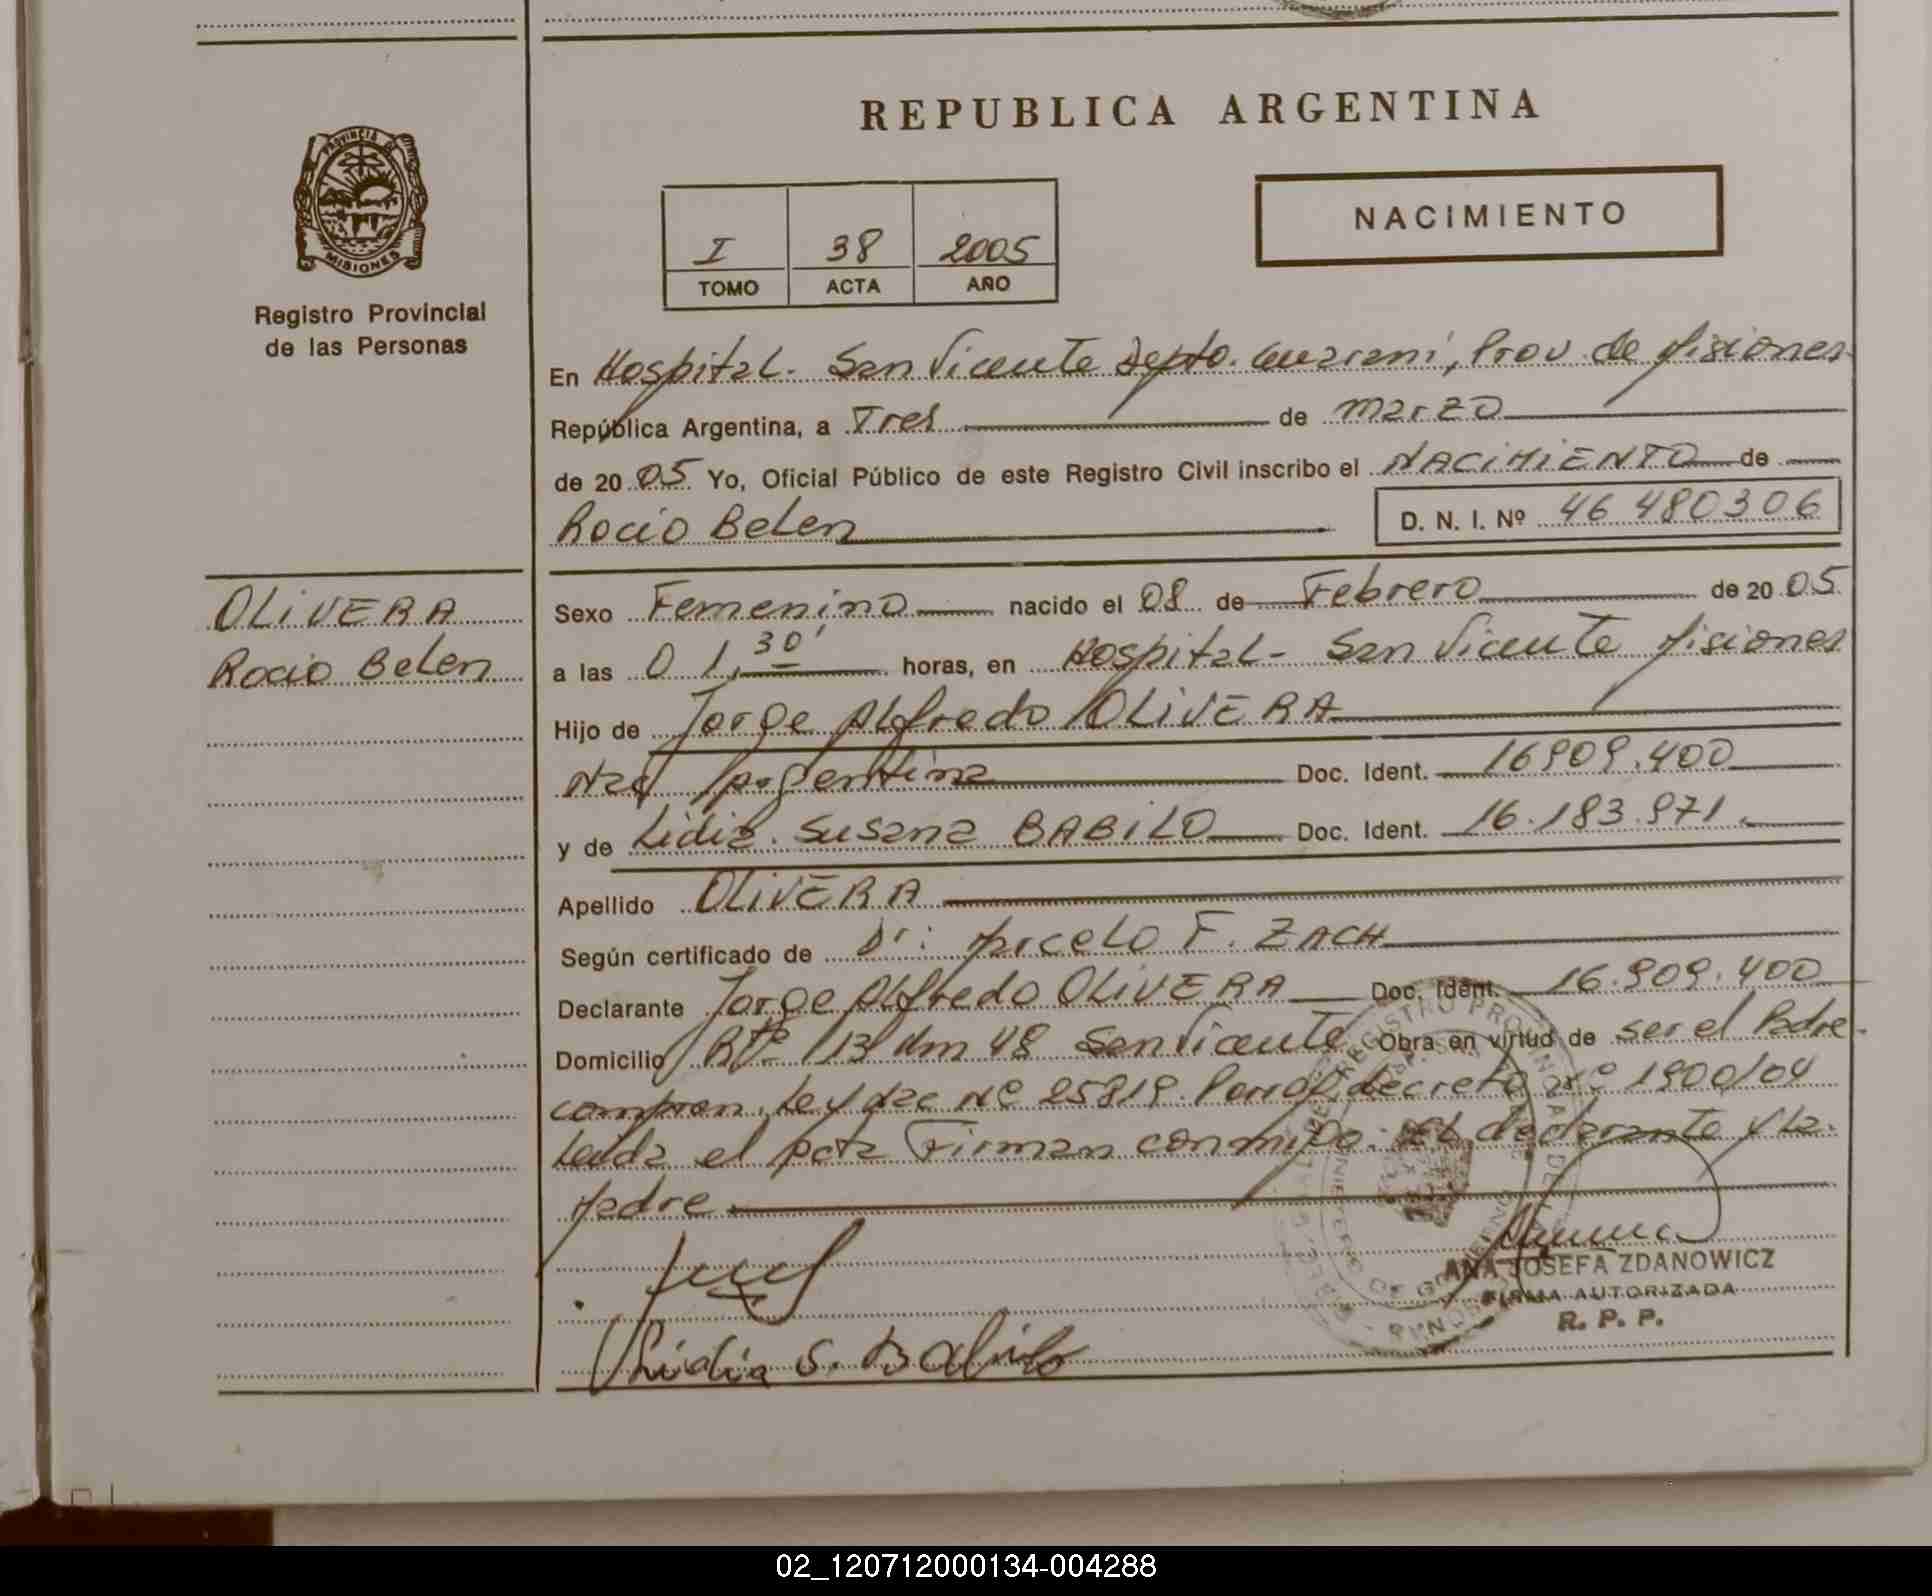 PROVINCIA DE
MISIONES
Registro Provincial
de las Personas
OLIVERA
Rocio Belen
REPUBLICA ARGENTINA
I 38 2005
TOMO ACTA AÑO
NACIMIENTO
En Hospital. San Vicente Depto. Guarani, Prov. de Misiones
República Argentina, a Tres de marzo
de 2005 Yo, Oficial Público de este Registro Civil inscribo el NACIMIENTO de
Rocio Belen D. N. I. Nº 46 480306
Sexo Femenino nacido el 08 de Febrero de 2005
a las 01,30' horas, en Hospital- San Vicente Misiones
Hijo de Jorge Alfredo OLIVERA
Nac Argentina Doc. Ident. 16909.400
y de Lidia. Susana BABILO Doc. Ident. 16.183.971.
Apellido OLIVERA
Según certificado de Dr: Marcelo F. ZACH
Declarante Jorge Alfredo OLIVERA Doc. Ident. 16.909.400
Domicilio Rta 13 Km 48 San Vicente Obra en virtud de ser el Padre.
Ley Nac Nº 25819. decreto Nº 1900/04
Leida el Acta Firman conmigo: El declarante y La.
Madre
Lidia S. Babilo
ANA JOSEFA ZDANOWICZ
FIRMA AUTORIZADA
R. P. P.
02_120712000134-004288